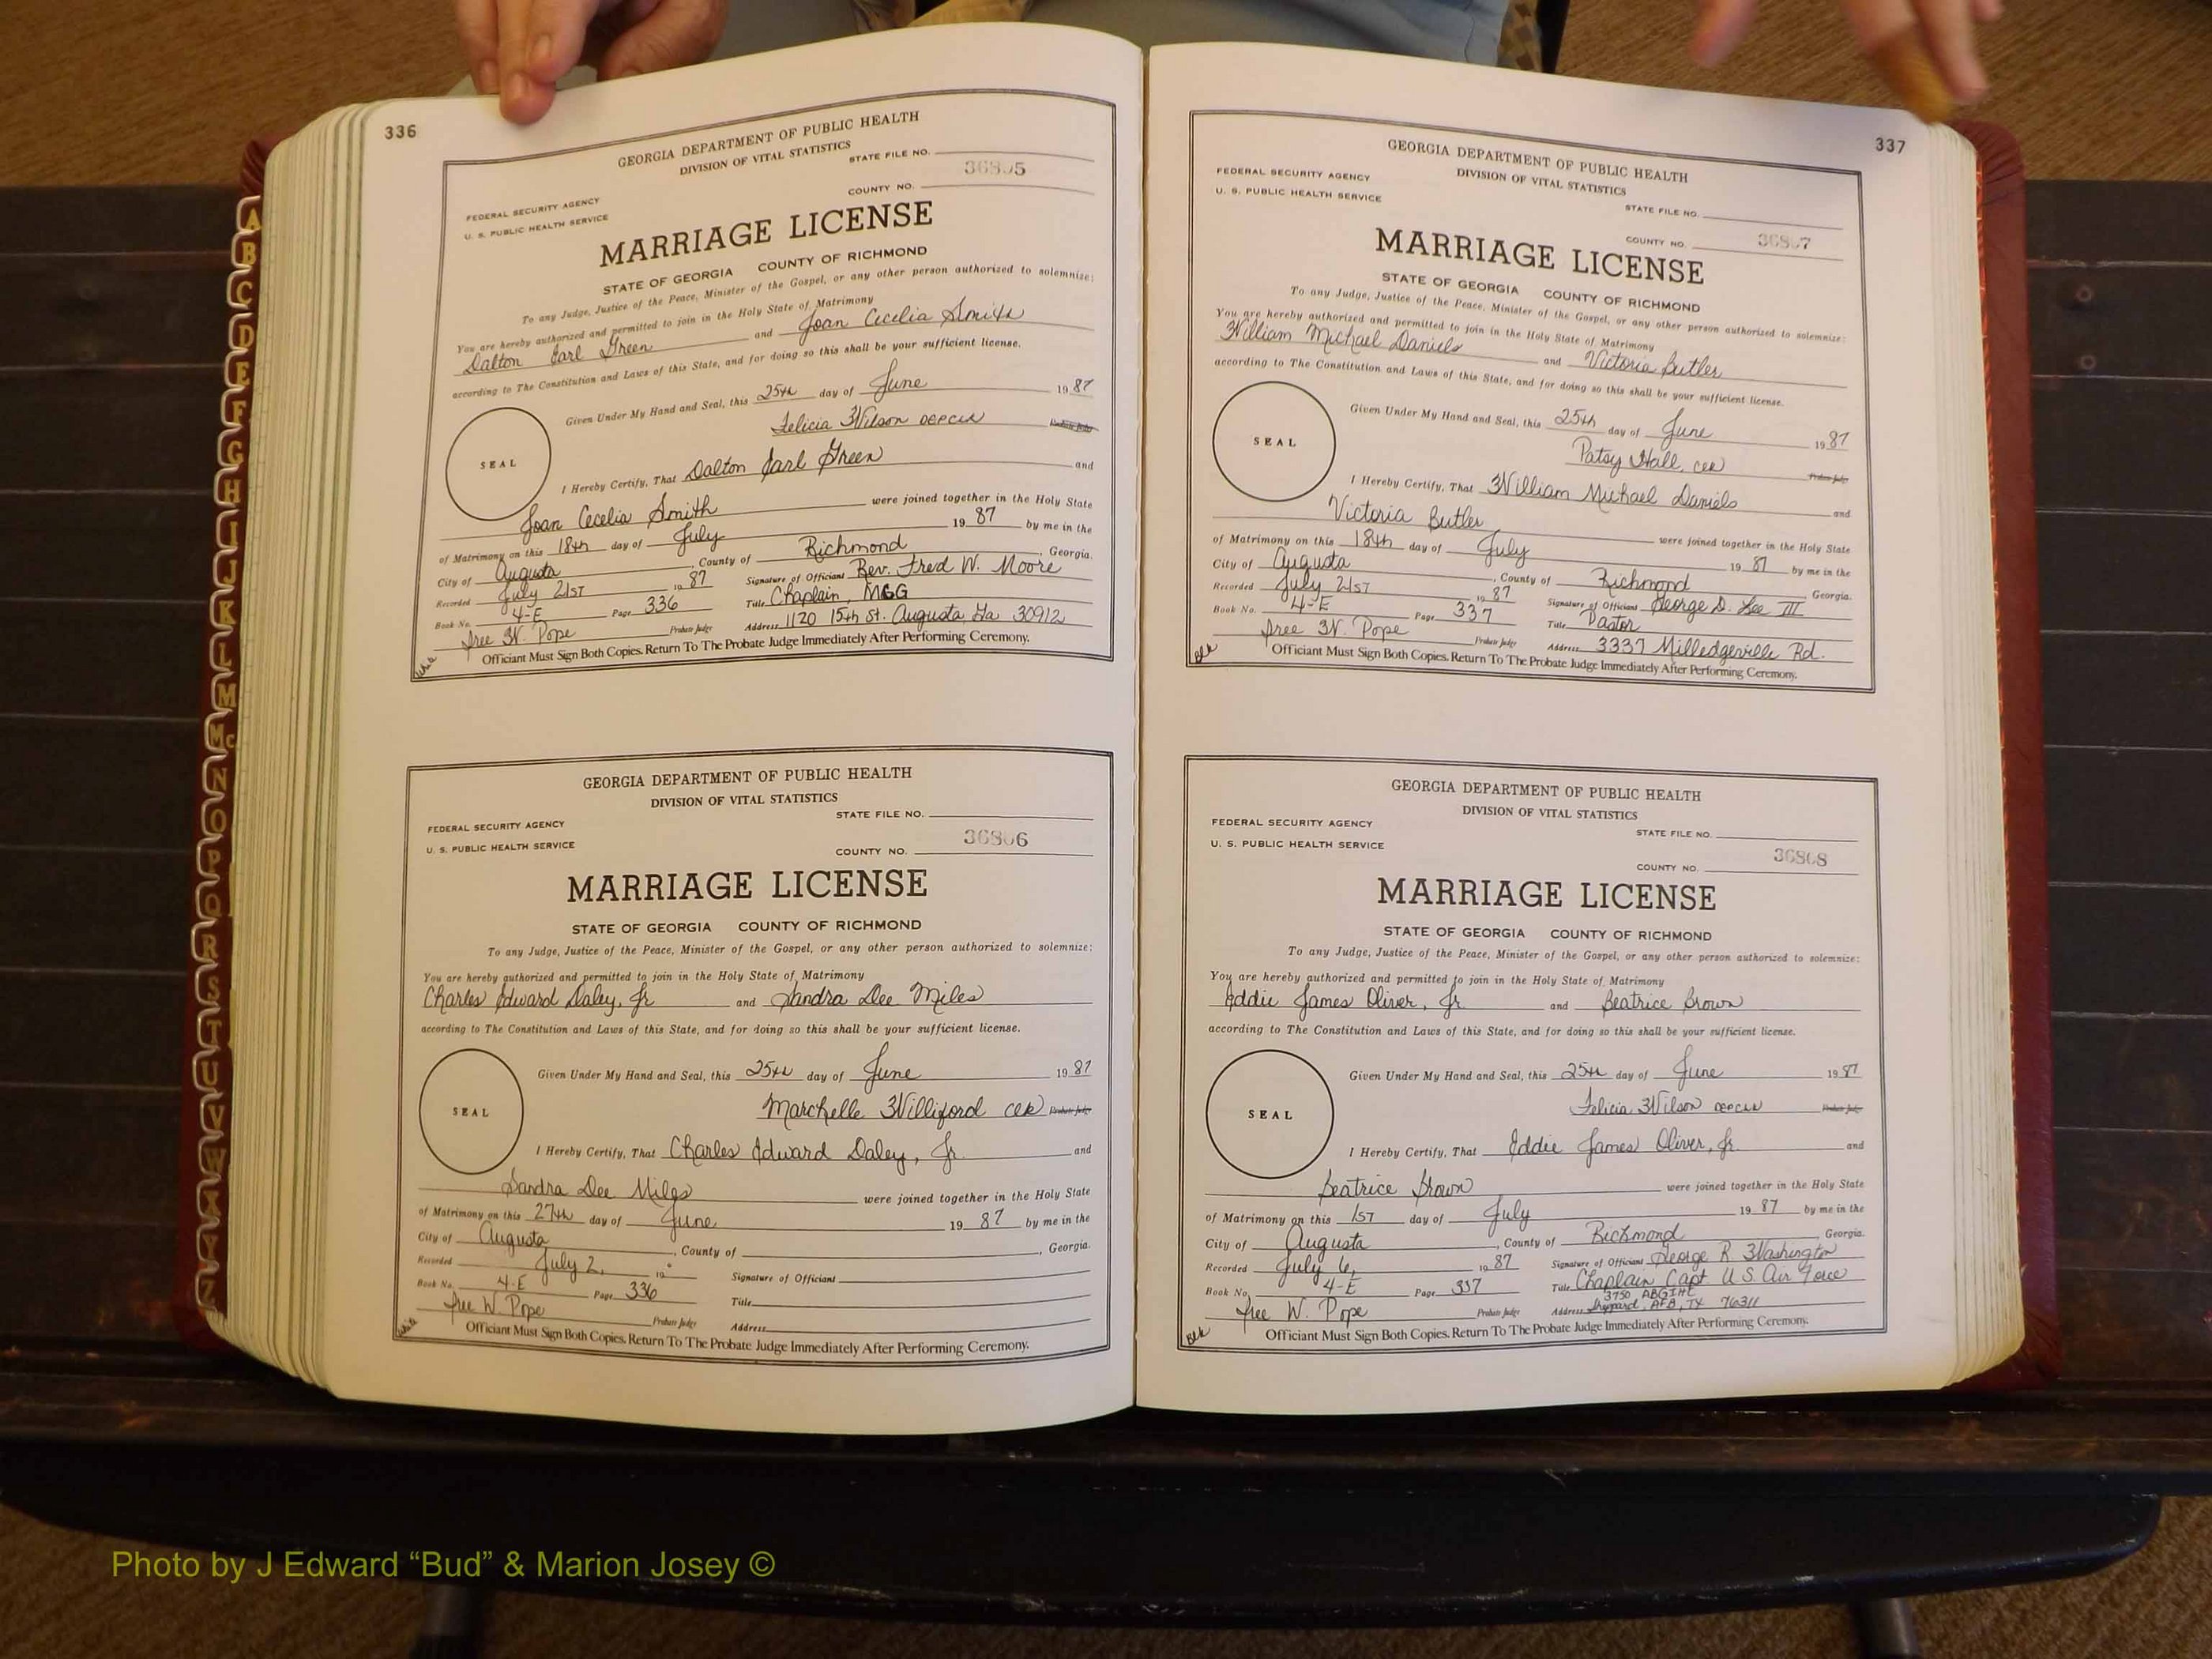 336
GEORGIA DEPARTMENT OF PUBLIC HEALTH
DIVISION OF VITAL STATISTICS
STATE FILE NO.
36805
COUNTY NO.
FEDERAL SECURITY AGENCY
U. S. PUBLIC HEALTH SERVICE
MARRIAGE LICENSE
STATE OF GEORGIA COUNTY OF RICHMOND
To any Judge, Justice of the Peace, Minister of the Gospel, or any other person authorized to solemnize:
You are hereby authorized and permitted to join in the Holy State of Matrimony
Dalton Earl Green and Joan Cecelia Smith
according to The Constitution and Laws of this State, and for doing so this shall be your sufficient license.
Given Under My Hand and Seal, this 25th day of June 1987
Felicia Wilson DEPCLK Probate Judge
SEAL
I Hereby Certify, That Dalton Earl Green and
Joan Cecelia Smith were joined together in the Holy State
of Matrimony on this 18th day of July 19 87 by me in the
City of Augusta, County of Richmond, Georgia.
Recorded July 21st 19 87 Signature of Officiant Rev. Fred W. Moore
Book No. 4-E Page 336 Title Chaplain, MCG
W. Pope Probate Judge Address 1120 15th St. Augusta Ga 30912
Officiant Must Sign Both Copies. Return To The Probate Judge Immediately After Performing Ceremony.
GEORGIA DEPARTMENT OF PUBLIC HEALTH
DIVISION OF VITAL STATISTICS
STATE FILE NO.
FEDERAL SECURITY AGENCY
U. S. PUBLIC HEALTH SERVICE
36806
COUNTY NO.
MARRIAGE LICENSE
STATE OF GEORGIA COUNTY OF RICHMOND
To any Judge, Justice of the Peace, Minister of the Gospel, or any other person authorized to solemnize:
You are hereby authorized and permitted to join in the Holy State of Matrimony
Charles Edward Daley, Jr and Sandra Dee Miles
according to The Constitution and Laws of this State, and for doing so this shall be your sufficient license.
Given Under My Hand and Seal, this 25th day of June 1987
Marchelle Williford CLK Probate Judge
SEAL
I Hereby Certify, That Charles Edward Daley, Jr. and
Sandra Dee Miles were joined together in the Holy State
of Matrimony on this 27th day of June 19 87 by me in the
City of Augusta, County of, Georgia.
Recorded July 2, 19 Signature of Officiant
Book No. 4-E Page 336 Title
W. Pope Probate Judge Address
Officiant Must Sign Both Copies. Return To The Probate Judge Immediately After Performing Ceremony.
337
GEORGIA DEPARTMENT OF PUBLIC HEALTH
DIVISION OF VITAL STATISTICS
FEDERAL SECURITY AGENCY
U. S. PUBLIC HEALTH SERVICE
STATE FILE NO.
COUNTY NO. 36807
MARRIAGE LICENSE
STATE OF GEORGIA COUNTY OF RICHMOND
To any Judge, Justice of the Peace, Minister of the Gospel, or any other person authorized to solemnize:
You are hereby authorized and permitted to join in the Holy State of Matrimony
William Michael Daniels and Victoria Butler
according to The Constitution and Laws of this State, and for doing so this shall be your sufficient license.
Given Under My Hand and Seal, this 25th day of June 1987
Patsy Hall, CLK Probate Judge
SEAL
I Hereby Certify, That William Michael Daniels and
Victoria Butler were joined together in the Holy State
of Matrimony on this 18th day of July 19 87 by me in the
City of Augusta, County of Richmond Georgia.
Recorded July 21st 19 87 Signature of Officiant George D. Lee III
Book No. 4-E Page 337 Title Pastor
W. Pope Probate Judge Address 3337 Milledgeville Rd.
Officiant Must Sign Both Copies. Return To The Probate Judge Immediately After Performing Ceremony.
GEORGIA DEPARTMENT OF PUBLIC HEALTH
DIVISION OF VITAL STATISTICS
FEDERAL SECURITY AGENCY
STATE FILE NO.
U. S. PUBLIC HEALTH SERVICE
36808
COUNTY NO.
MARRIAGE LICENSE
STATE OF GEORGIA COUNTY OF RICHMOND
To any Judge, Justice of the Peace, Minister of the Gospel, or any other person authorized to solemnize:
You are hereby authorized and permitted to join in the Holy State of Matrimony
Eddie James Oliver, Jr and Beatrice Brown
according to The Constitution and Laws of this State, and for doing so this shall be your sufficient license.
Given Under My Hand and Seal, this 25th day of June 1987
Felicia Wilson DEPCLK Probate Judge
SEAL
I Hereby Certify, That Eddie James Oliver, Jr. and
Beatrice Brown were joined together in the Holy State
of Matrimony on this 1st day of July 19 87 by me in the
City of Augusta, County of Richmond Georgia.
Recorded July 6, 19 87 Signature of Officiant George R Washington
Book No. 4-E Page 337 Title Chaplain Capt U.S. Air Force
3750
W. Pope Probate Judge Address Sheppard, AFB, TX 76311
Officiant Must Sign Both Copies. Return To The Probate Judge Immediately After Performing Ceremony.
A
B
C
D
E
F
G
H
I
J
K
L
M
Mc
N
O
P
Q
R
S
T
U
V
W
X
Y
Z
Photo by J Edward “Bud” & Marion Josey ©